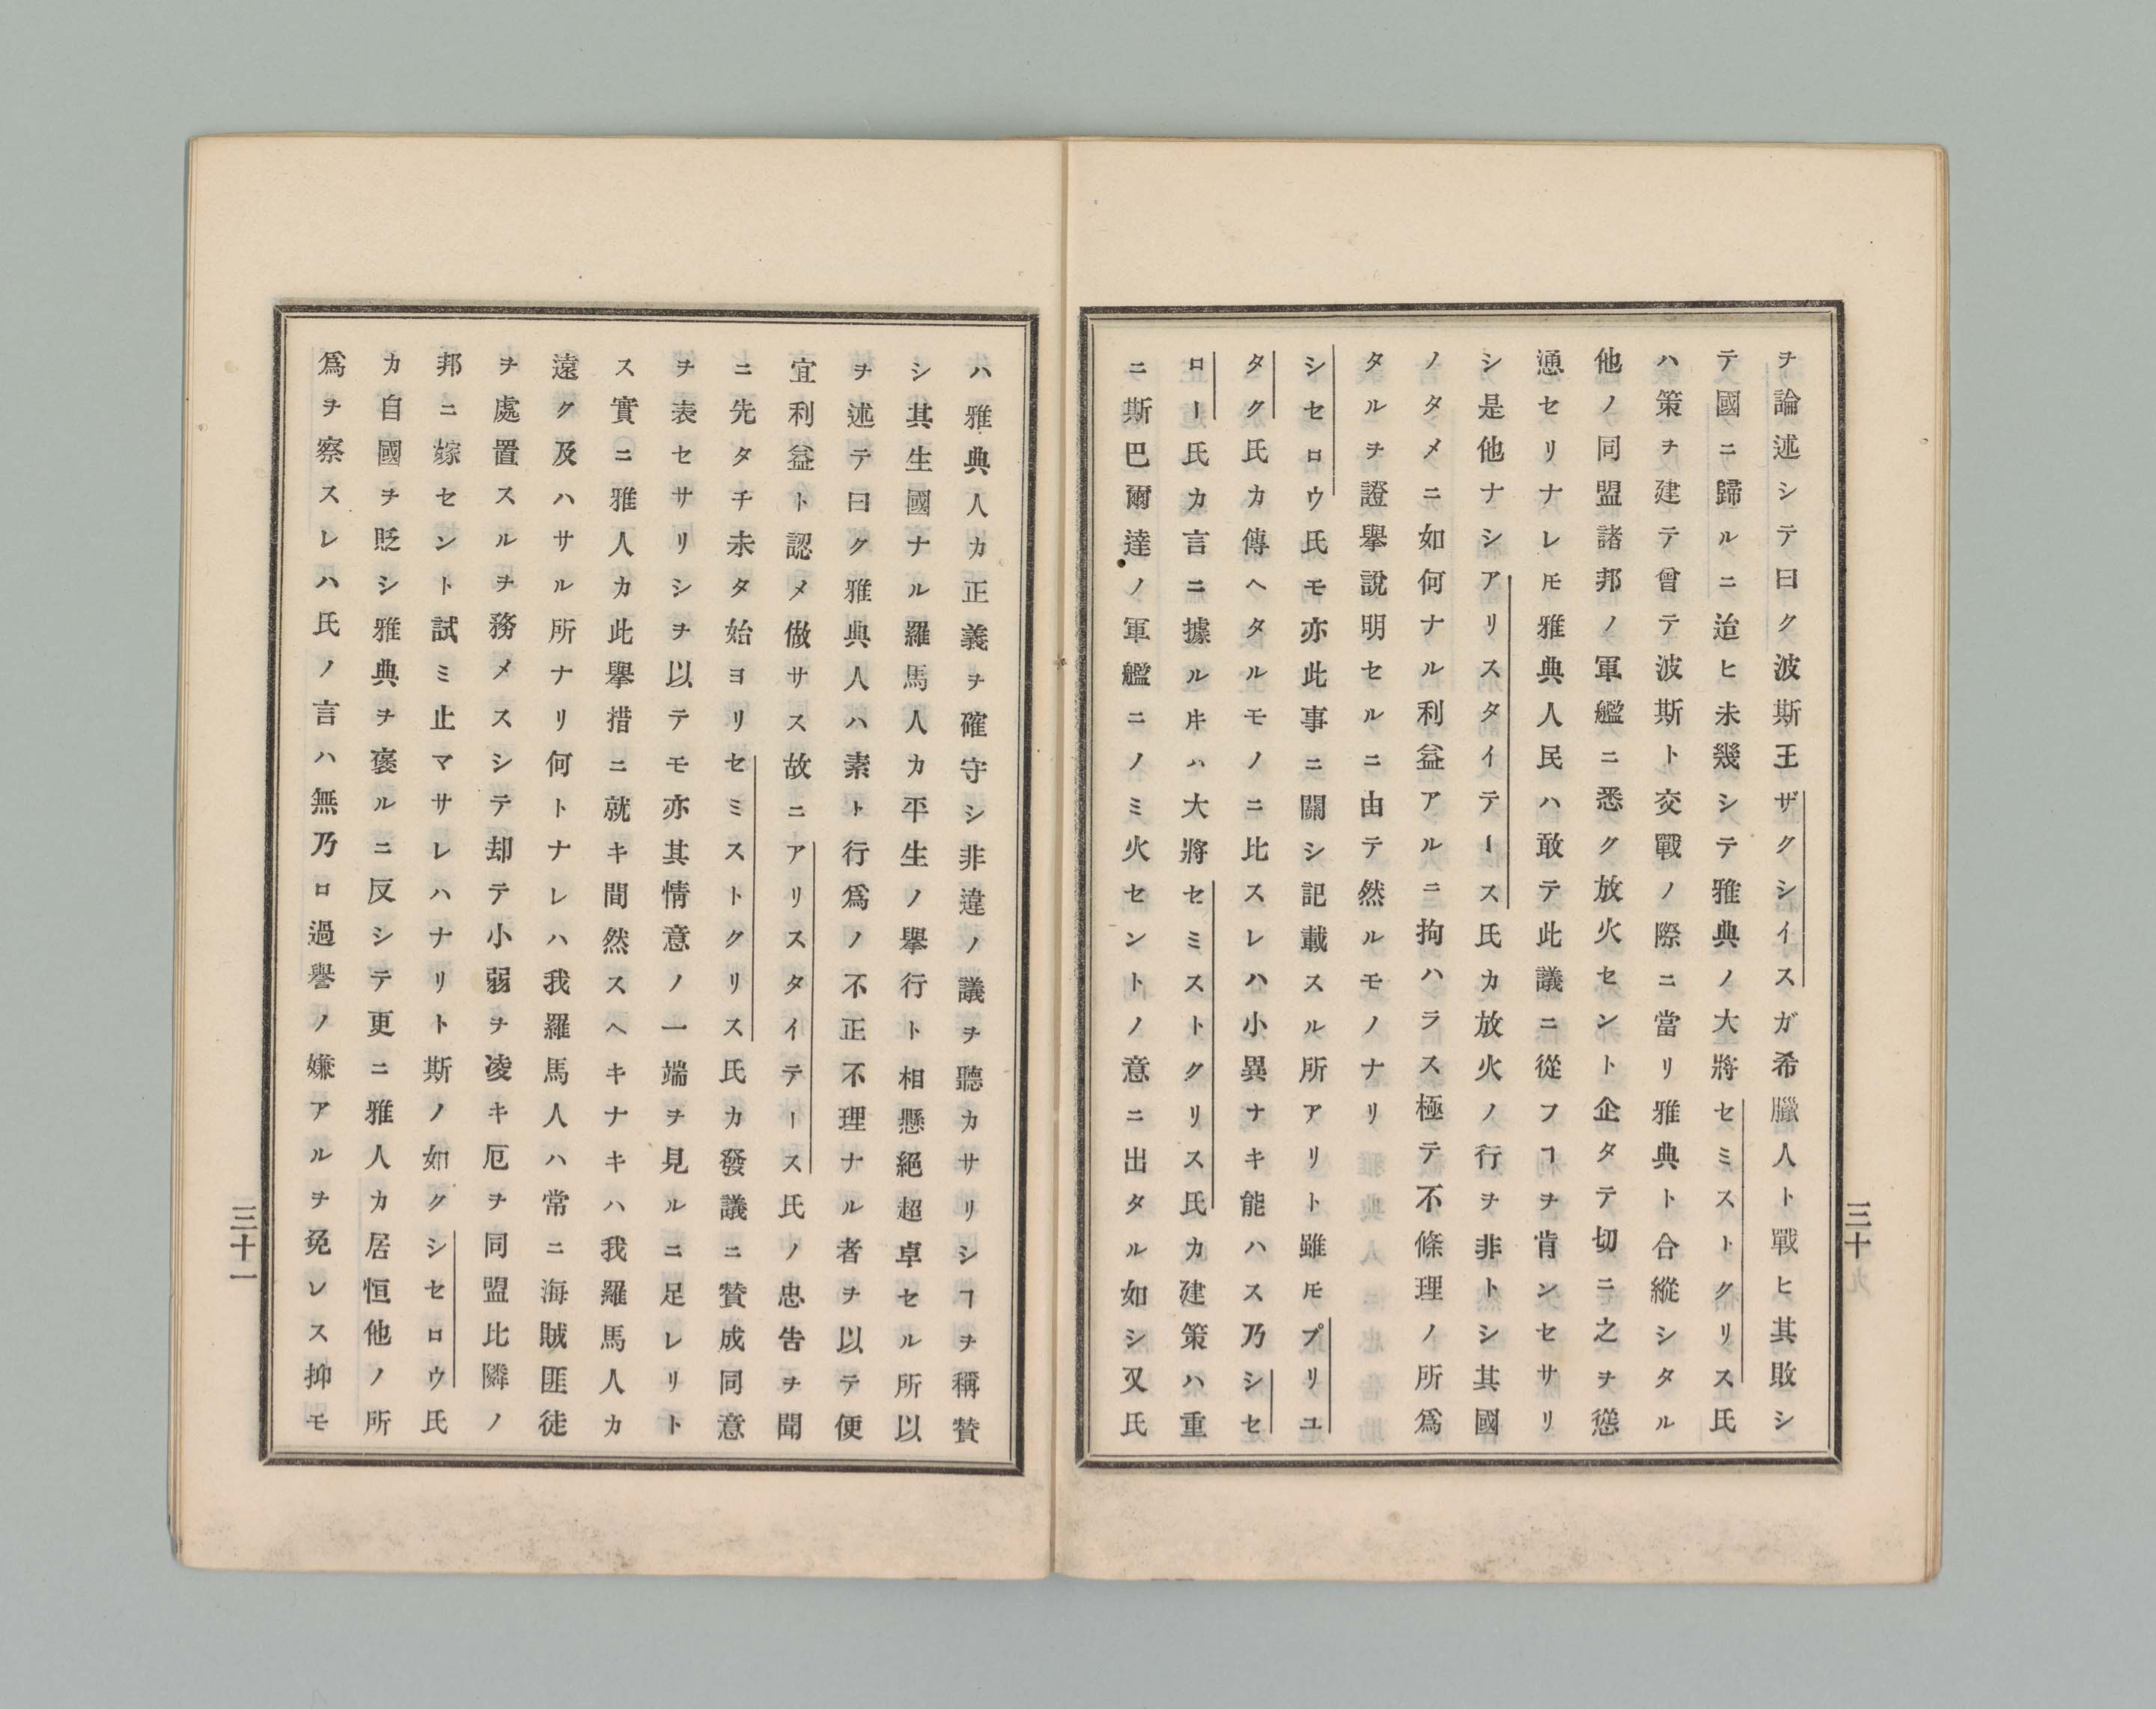 ヲ論述シテ曰ク波斯王ザクシイスガ希臘人ト戰ヒ其敗シ
テ國ニ歸ルニ迨ヒ未幾シテ雅典ノ大將セミストクリス氏
ハ策ヲ建テ曾テ波斯ト交戰ノ際ニ當リ雅典ト合縱シタル
他ノ同盟諸邦ノ軍艦ニ悉ク放火セント企タテ切ニ之ヲ慫
慂セリナレ𪜈雅典人民ハ敢テ此議ニ從フヿヲ肯ンセサリ
シ是他ナシアリスタイテース氏カ放火ノ行ヲ非トシ其國
ノタメニ如何ナル利益アルニ拘ハラス極テ不條理ノ所爲
タルヲ證擧説明セルニ由テ然ルモノナリ
シセロウ氏モ亦此事ニ關シ記載スル所アリト雖𪜈プリユ
タク氏カ傳ヘタルモノニ比スレハ小異ナキ能ハス乃シセ
ロー氏カ言ニ據ル𪜈ハ大將セミストクリス氏カ建策ハ重
ニ斯巴爾達ノ軍艦ニノミ火セントノ意ニ出タル如シ又氏
三十
ハ雅典人カ正義ヲ確守シ非違ノ議ヲ聽カサリシヿヲ稱賛
シ其生國ナル羅馬人カ平生ノ擧行ト相懸絕超卓セル所以
ヲ述テ曰ク雅典人ハ素ト行爲ノ不正不理ナル者ヲ以テ便
宜利益ト認メ做サス故ニアリスタイテース氏ノ忠告ヲ聞
ニ先タチ未タ始ヨリセミストクリス氏カ發議ニ賛成同意
ヲ表セサリシヲ以テモ亦其情意ノ一端ヲ見ルニ足レリト
ス實ニ雅人カ此擧措ニ就キ間然スヘキナキハ我羅馬人カ
遠ク及ハサル所ナリ何トナレハ我羅馬人ハ常ニ海賊匪徒
ヲ處置スルヲ務メスシテ却テ小弱ヲ凌キ厄ヲ同盟比隣ノ
邦ニ嫁セント試ミ止マサレハナリト斯ノ如クシセロウ氏
カ自國ヲ貶シ雅典ヲ褒ルニ反シテ更ニ雅人カ居恒他ノ所
爲ヲ察スレハ氏ノ言ハ無乃ロ過譽ノ嫌アルヲ免レス抑モ
三十一